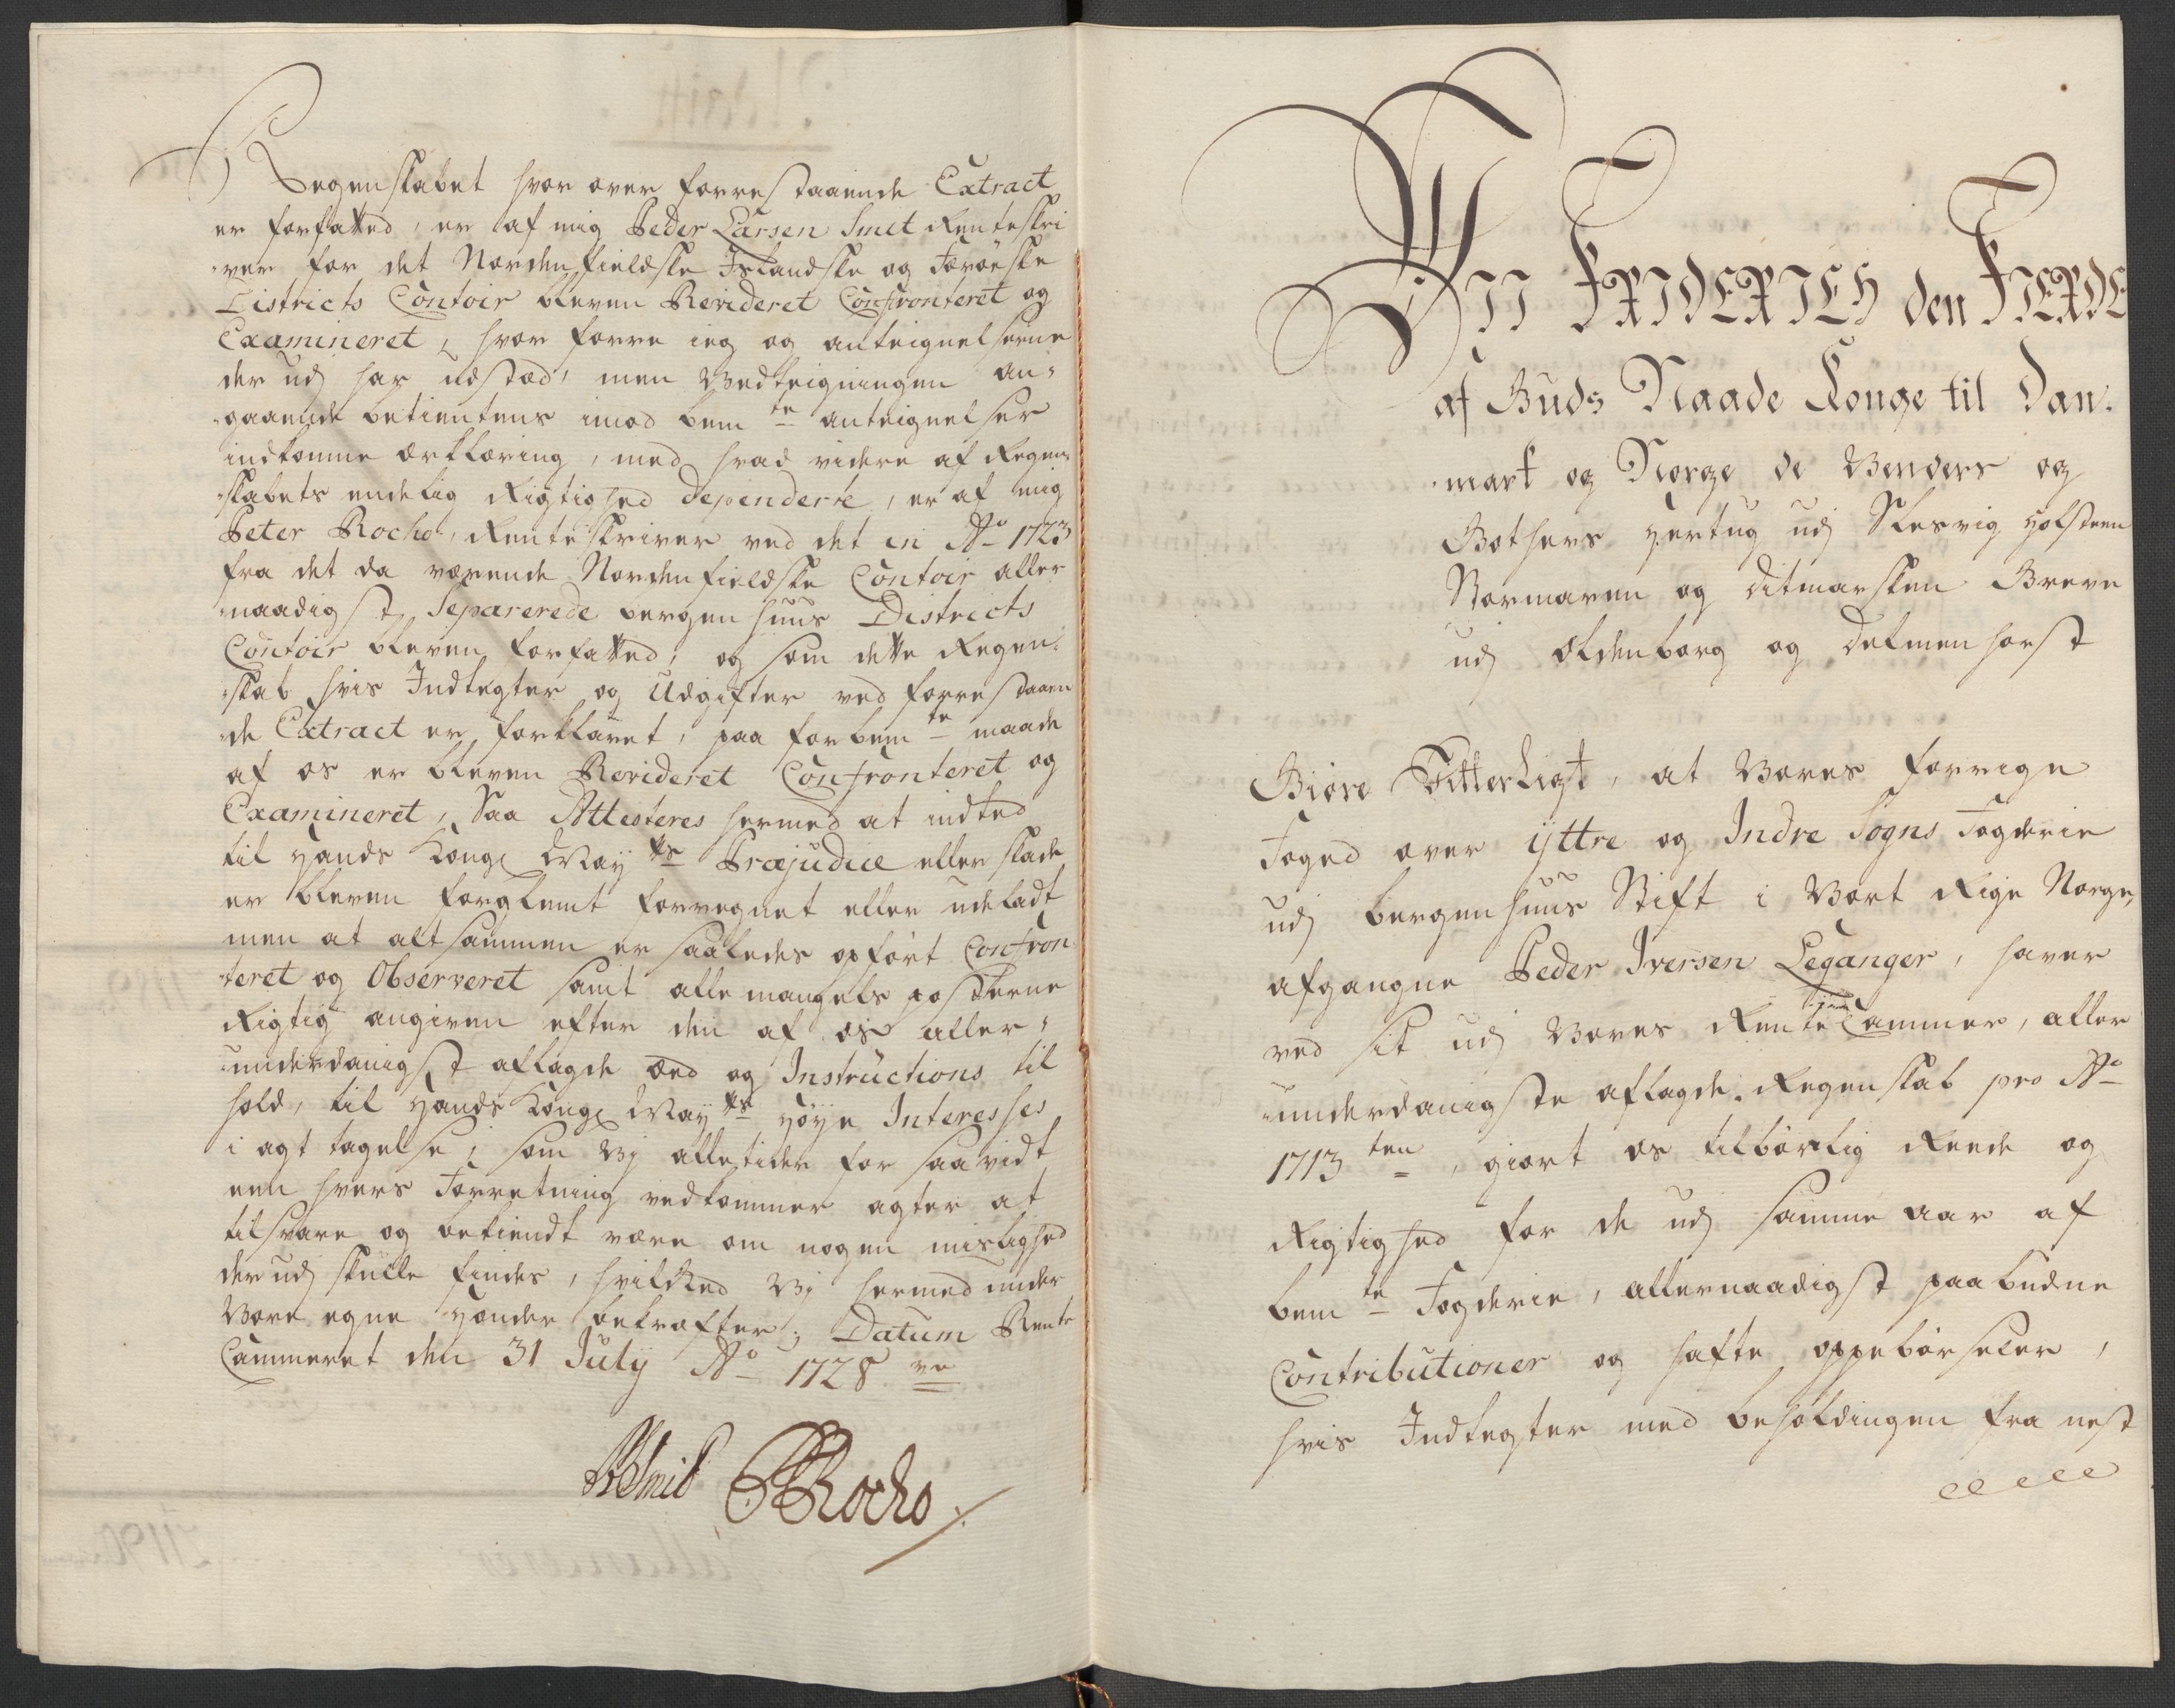 Regenskabet hvor over forrestaaende Extract
er forfatted, er af mig Peder Larsen Smit Renteskri
ver for det Nordenfieldske Islandske og Færøeske
Districts Contoir bleven Revideret Confronteret og
Examineret, hvor forre ieg og anteignelserne
der udj har udstæd, men Vedteigningen an-
gaaende betientens imod bem te anteignelser
indkomne ærklæring, med hvad videre af Regen-
skabets endelig Rigtighed dependerte, er af mig
Peter Rocho, Renteskriver ved det in Ao 1723
fra det da værende Nordenfieldske Contoir aller
naadigst Separerede bergenhuus Districts
Contoir bleven forfatted, og som dette Regen-
skab hvis Indtegter og Udgifter ved forrestaaen
de Extract er forklaret, paa forbem te maade
af os er bleven Revideret Confronteret og
Examineret, Saa Attesteres hermed at indted
til Hands Kongl May ts Præjudice eller skade
er bleven forglemt forregnet eller udeladt
men at alt sammen er saaledes opført Confron
teret og Observeret samt alle mangels posterne
Rigtig angiven efter den af os aller-
underdanigst aflagde Eed og Instructions til
hold, til Hands Kongl May ts høye Interesses
i agt tagelse, som Vj alletider for saavidt
een hvers Forretning vedkommer agter at
tilsvare og bekiendt være om nogen mislighed
der udj skulle findes, hvilked Vj hermed under
Vore egne Hænder bekræfter, Datum Rente
Cammeret den 31 July Ao 1728 ve
PLSmit PRocho
WII FRIDERICH den FIERDE
af Guds Naade Konge til Dan-
mark og Norge de Venders og
Gothers Hertug udj Slesvig Holsteen
Stormaren og Ditmarsken Greve
udj Oldenborg og Delmenhorst
Giøre Vitterligt, at Vores forrige
Foged over yttre og Indre Sogns Fogderie
udj bergenhuus Stift i Vort Rige Norge,
afgangne Peder Iversen Leganger, haver
ved sit udj Vores Rente Cammer, aller
underdanigste aflagde Regenskab pro Ao
1713 ten, giort os tilbørlig Reede og
Rigtighed for de udj samme aar af
bem te Fogderie, allernaadigst paabudne
Contributioner og hafte oppebørseler,
hvis Indtegter med beholdingen fra nest